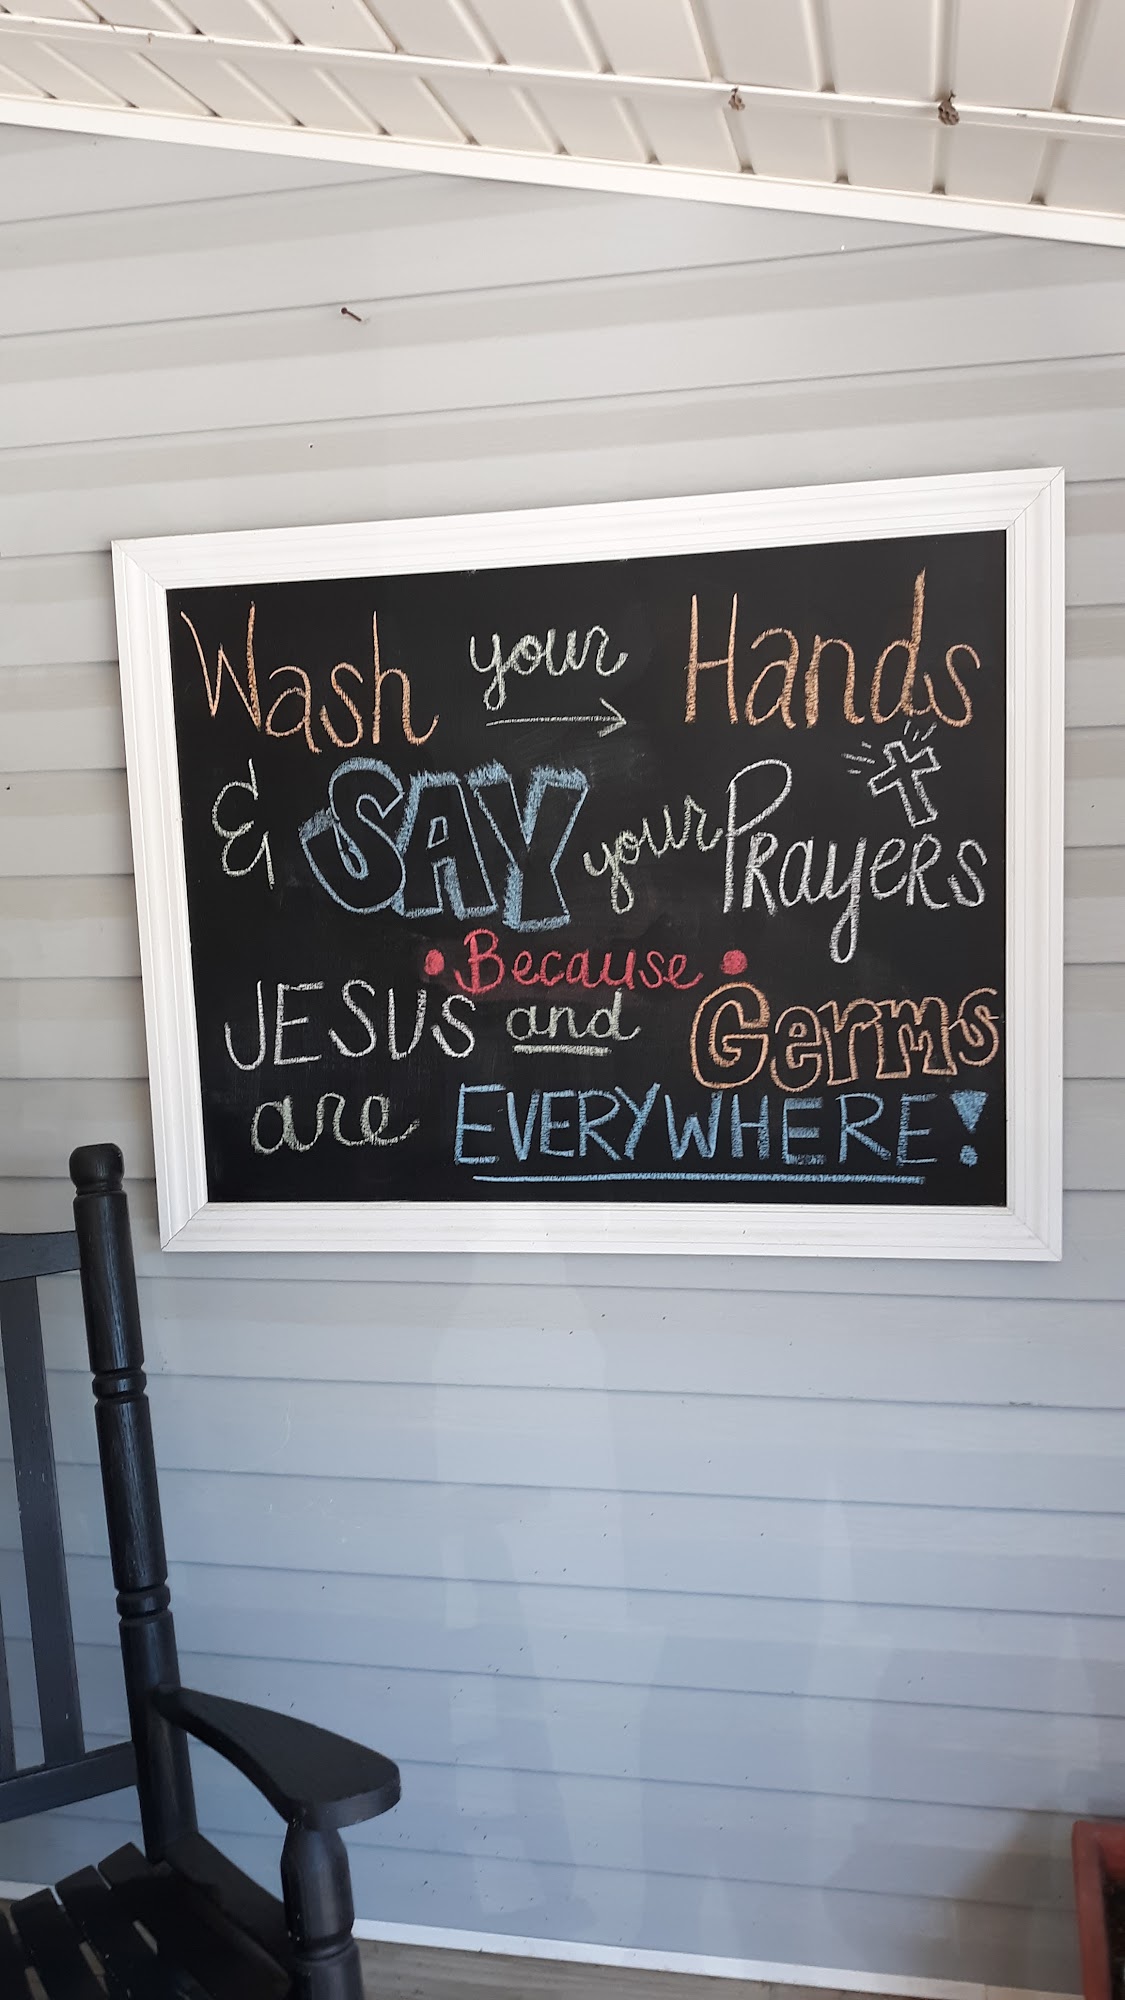 Wash your Hands
& SAY your PRayeRS
• Because •
JESUS and Germs
are EVERYWHERE!